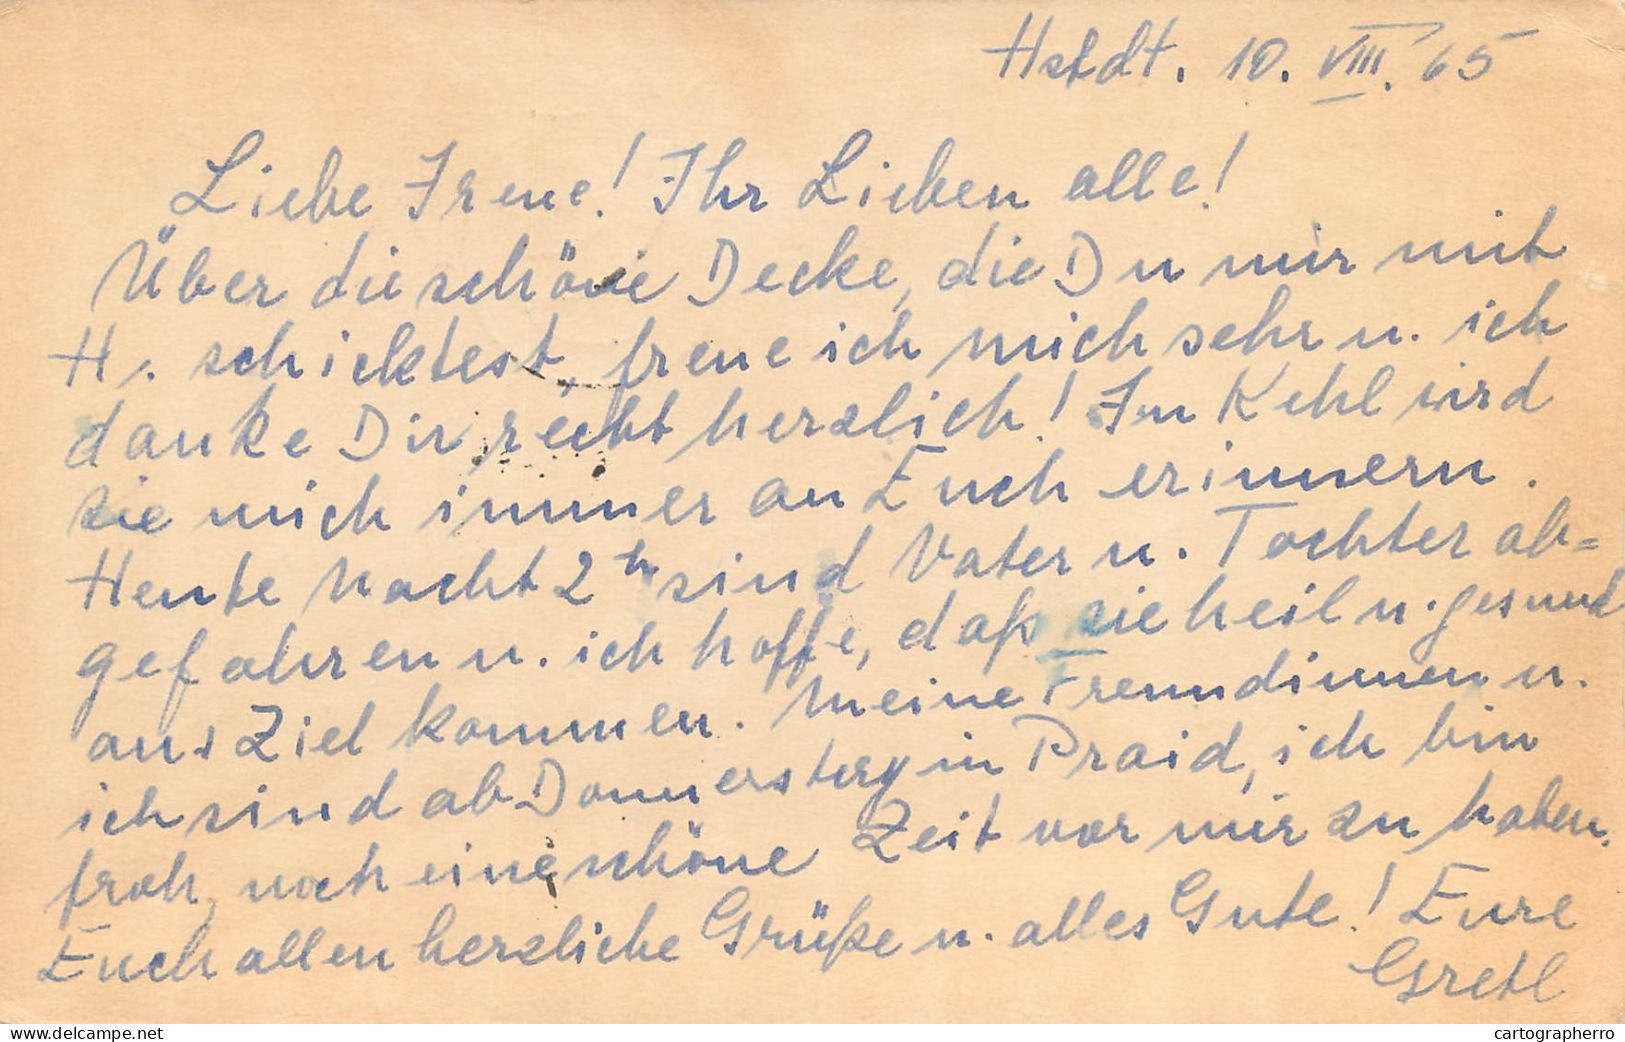 Hstdt. 10. VIII. 65
Liebe Irene! Ihr Lieben alle!
Über die schöne Decke, die Du mir mit
H. schicktest, freue ich mich sehr u. ich
danke Dir recht herzlich! In Kehl wird
sie mich immer an Euch erinnern.
Heute Nacht 2h sind Vater u. Tochter ab=
gefahren u. ich hoffe, daß sie heil u. gesund
ans Ziel kommen. Meine Freundinnen u.
ich sind ab Donnerstag in Praid, ich bin
froh, noch eine schöne Zeit vor mir zu haben.
Euch allen herzliche Grüße u. alles Gute! Eure
Gretl
www.delcampe.net
cartographerro